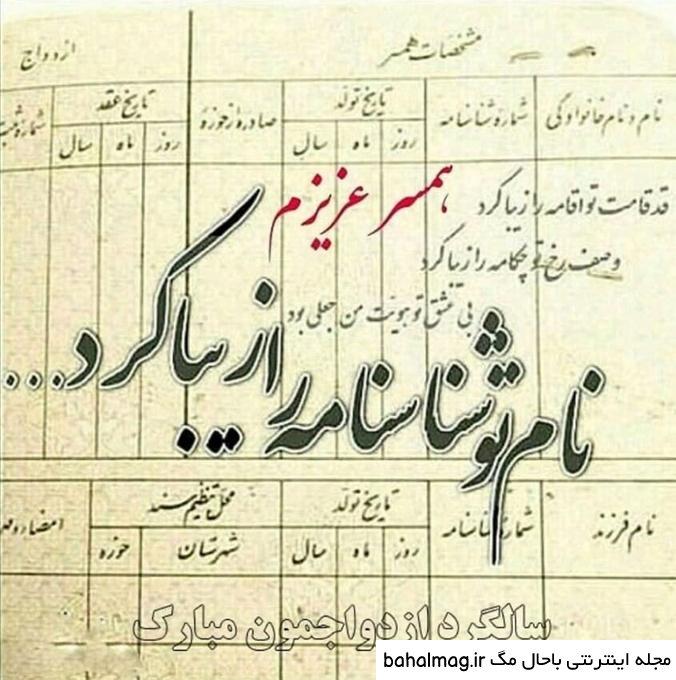 مشخصات همسر ازدواج
نام و نام خانوادگی شمارهٔ شناسنامه تاریخ تولد صادره از حوزهٔ تاریخ عقد
روز ماه سال روز ماه سال
همسر عزیزم
قد قامت تو اقامه را زیبا کرد
وصف رخ تو چکامه را زیبا کرد
بی عشق تو هویت من جعلی بود
نام تو شناسنامه را زیبا کرد...
نام فرزند شمارهٔ شناسنامه تاریخ تولد محل تنظیم سند
روز ماه سال شهرستان حوزه
سالگرد ازدواجمون مبارک
مجله اینترنتی باحال مگ bahalmag.ir